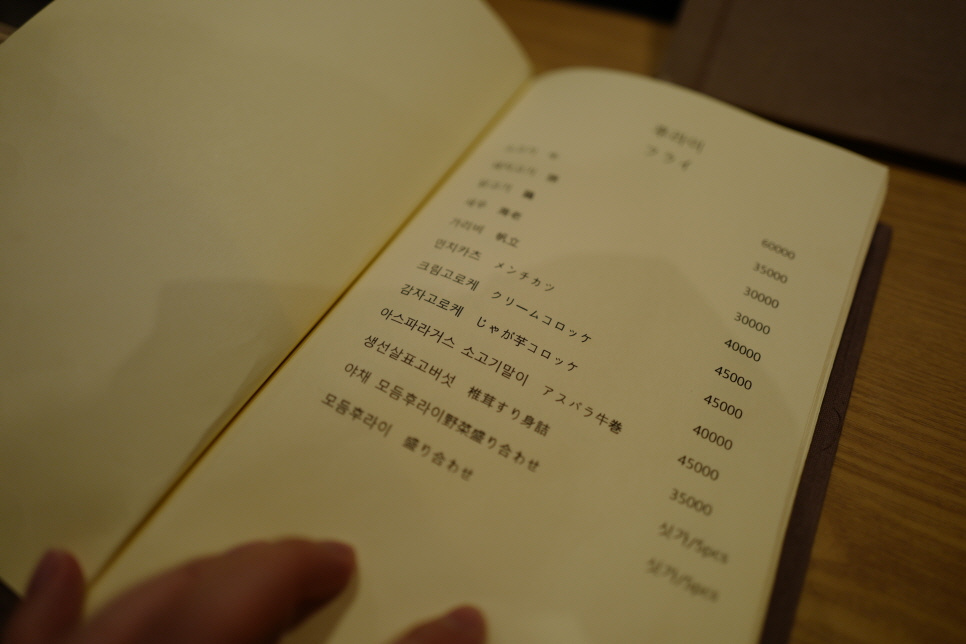 후라이
フライ
소고기 牛 60000
돼지고기 豚 35000
닭고기 鶏 30000
새우 海老 30000
가리비 帆立 40000
민치카츠 メンチカツ 45000
크림고로케 クリームコロッケ 45000
감자고로케 じゃが芋コロッケ 40000
아스파라거스 소고기말이 アスパラ牛巻 45000
생선살표고버섯 椎茸すり身詰 35000
야채 모듬후라이野菜盛り合わせ 싯가/5pcs
모듬후라이 盛り合わせ 싯가/5pcs